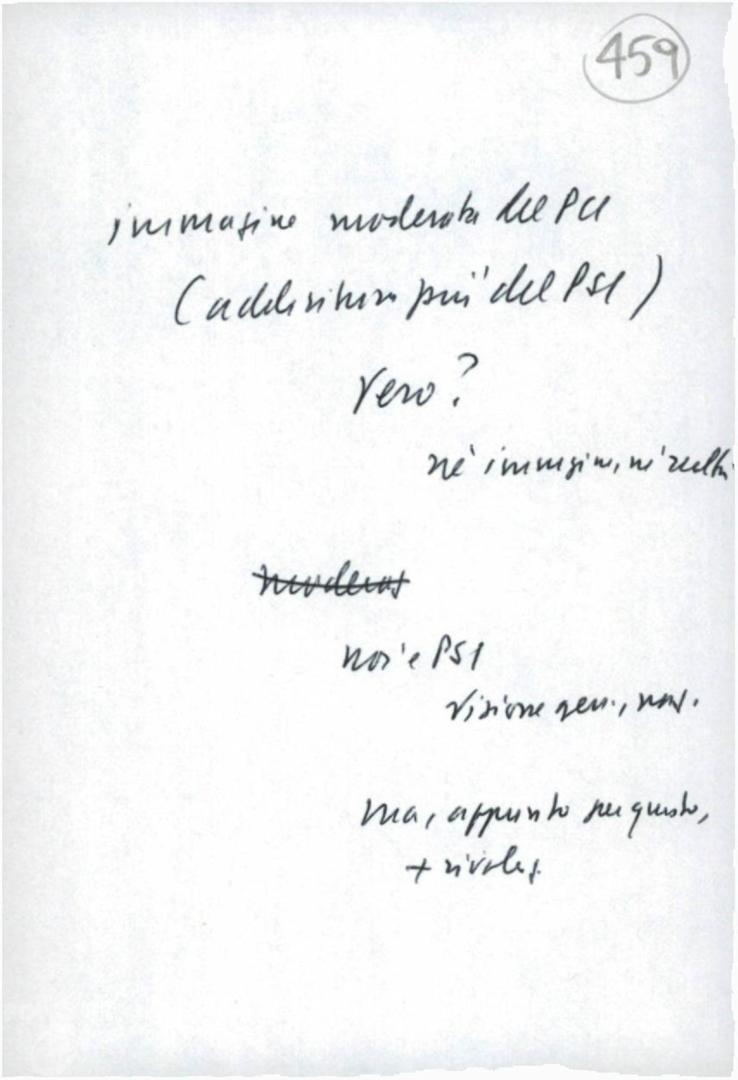 459
immagine moderata del PCI
(addirittura più del PSI)
Vero?
né immagine, né realtà
moderat
noi e PSI
visione gen., naz.
ma, appunto per questo,
+ rivoluz.